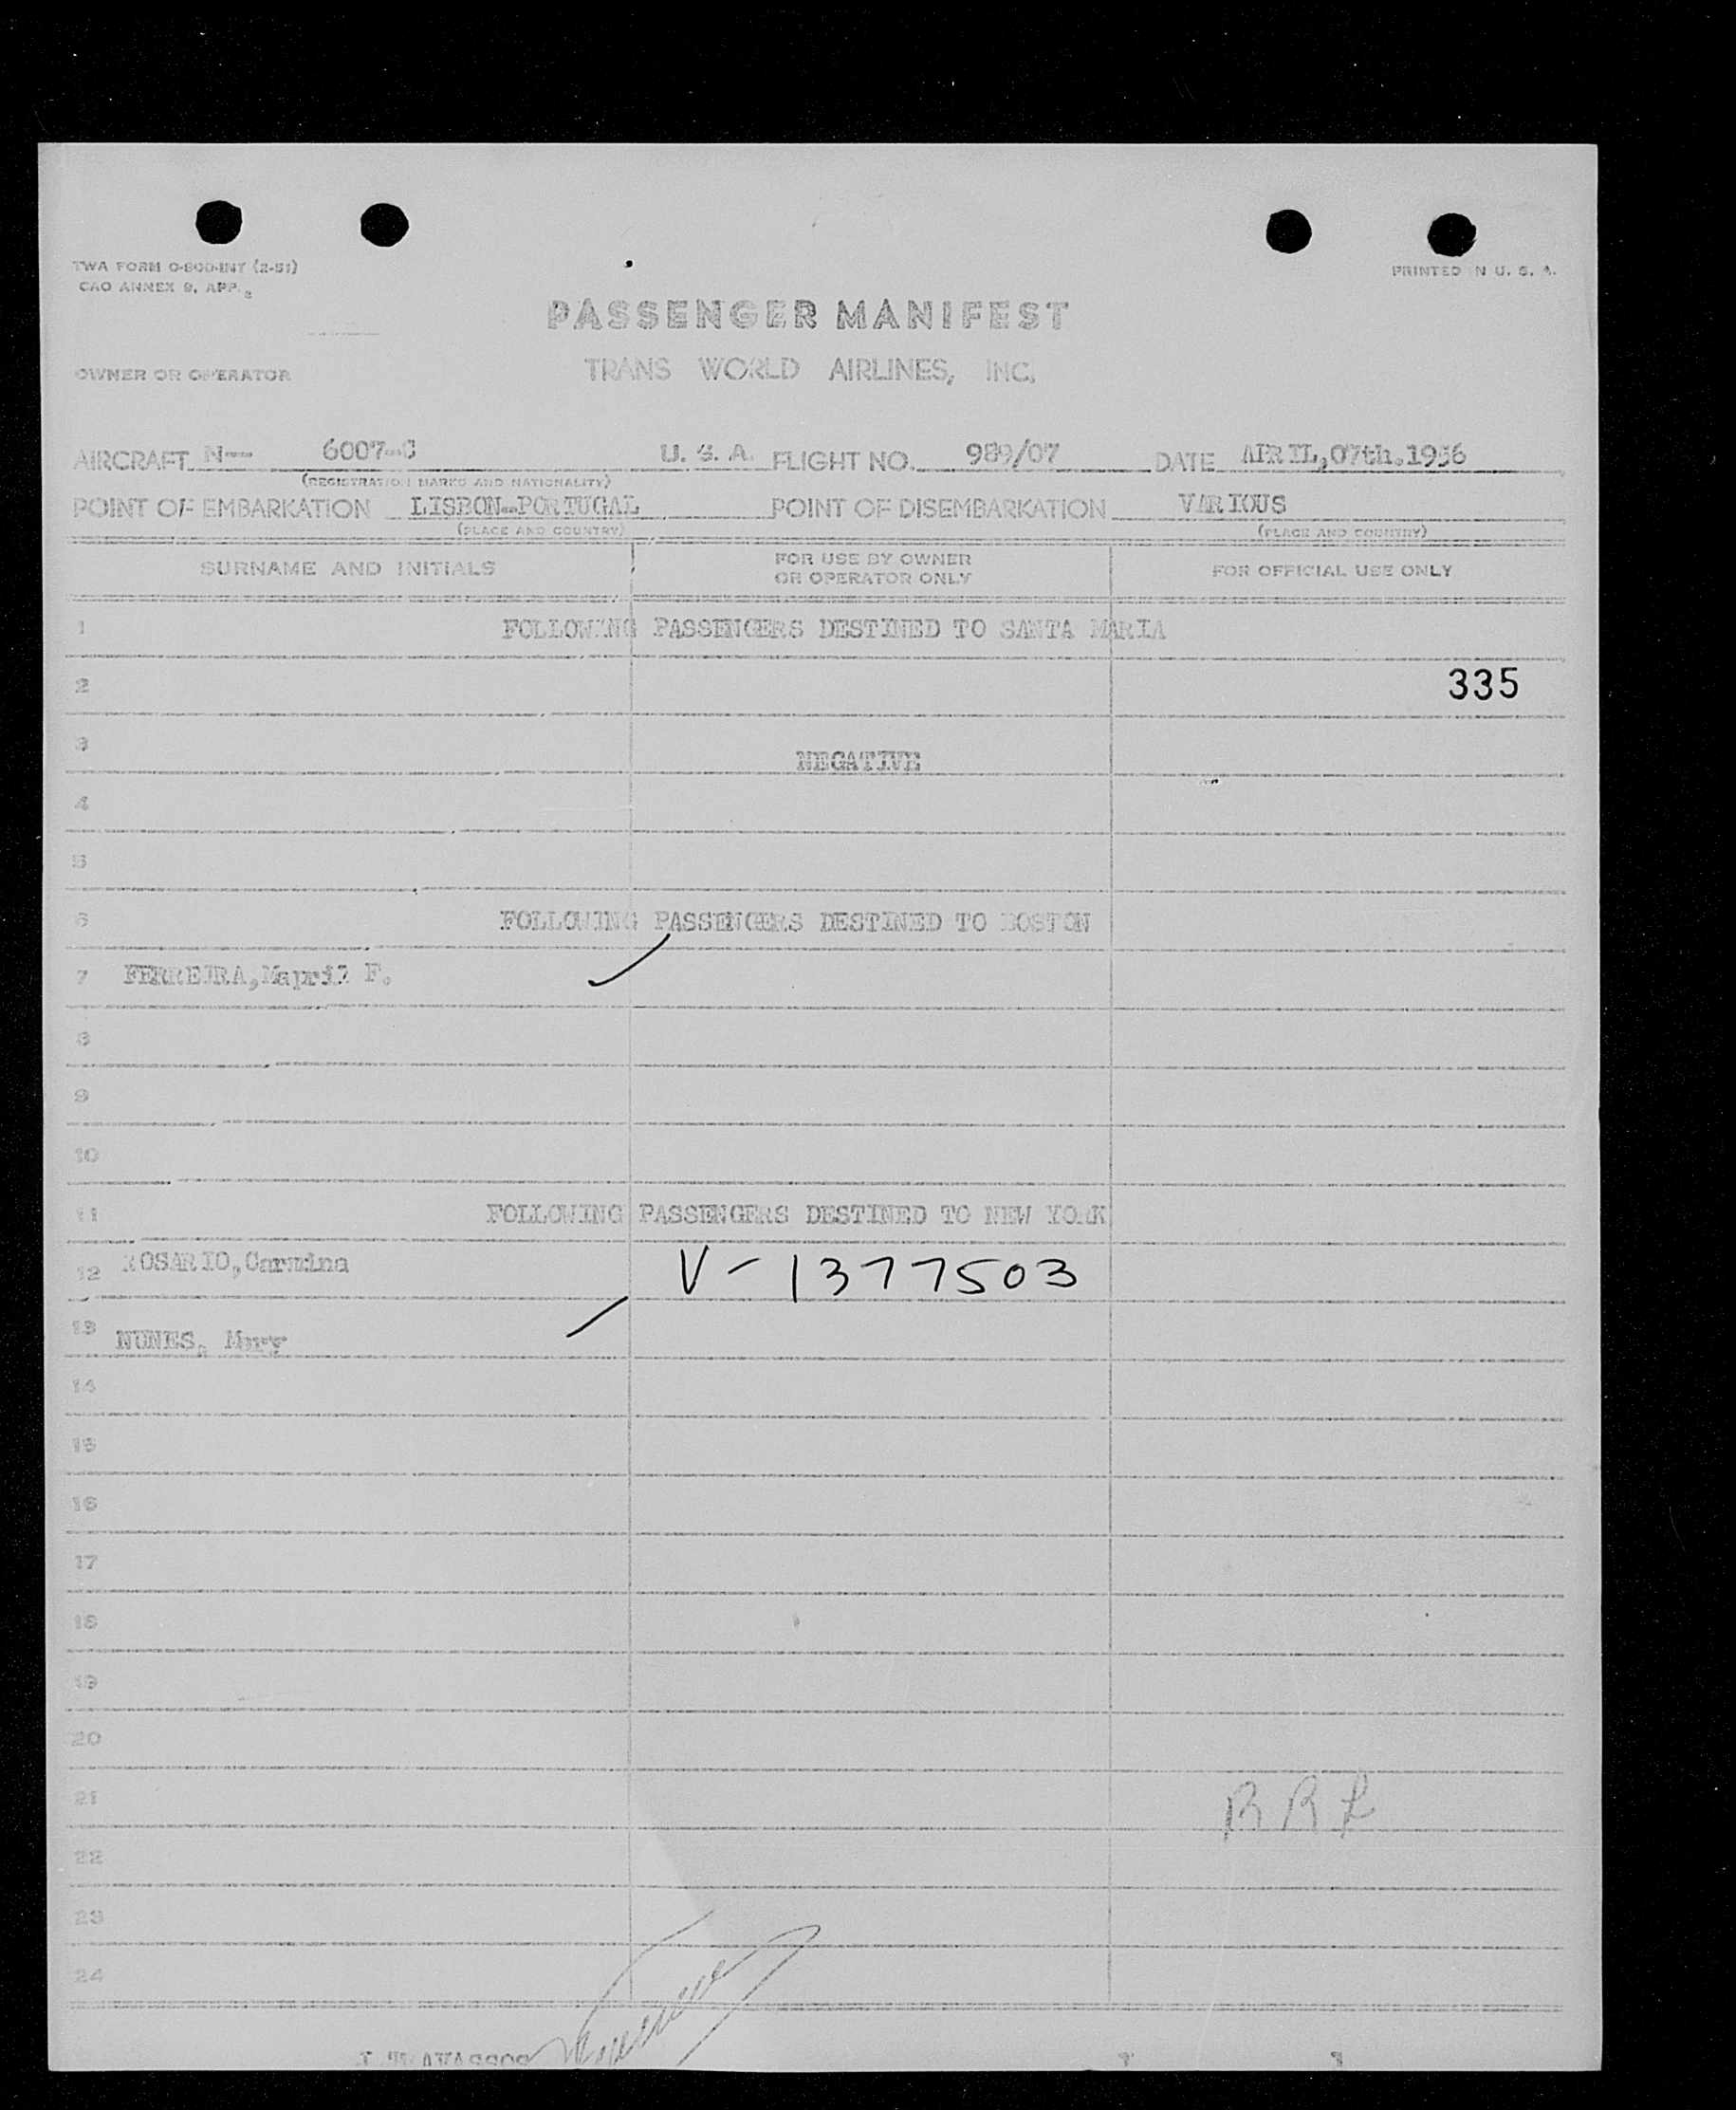 TWA FORM O-800-INT (2-51)
PRINTED IN U. S. A.
CAO ANNEX 9, APP.
PASSENGER MANIFEST
OWNER OR OPERATOR
TRANS WORLD AIRLINES, INC.
AIRCRAFT N-- 6007-C U. S. A. FLIGHT NO. 989/07 DATE APRIL,07th.1956
(REGISTRATION MARKS AND NATIONALITY)
POINT OF EMBARKATION LISBON-PORTUGAL POINT OF DISEMBARKATION VARIOUS
(PLACE AND COUNTRY) (PLACE AND COUNTRY)
SURNAME AND INITIALS
FOR USE BY OWNER
OR OPERATOR ONLY
FOR OFFICIAL USE ONLY
1 FOLLOWING PASSENGERS DESTINED TO SANTA MARIA
2 335
3 NEGATIVE
4
5
6 FOLLOWING PASSENGERS DESTINED TO BOSTON
7 FERREIRA,Mapril F.
8
9
10
11 FOLLOWING PASSENGERS DESTINED TO NEW YORK
12 ROSARIO,Carmina V-1377503
13 NUNES, Mary
14
15
16
17
18
19
20
21
22
23
24